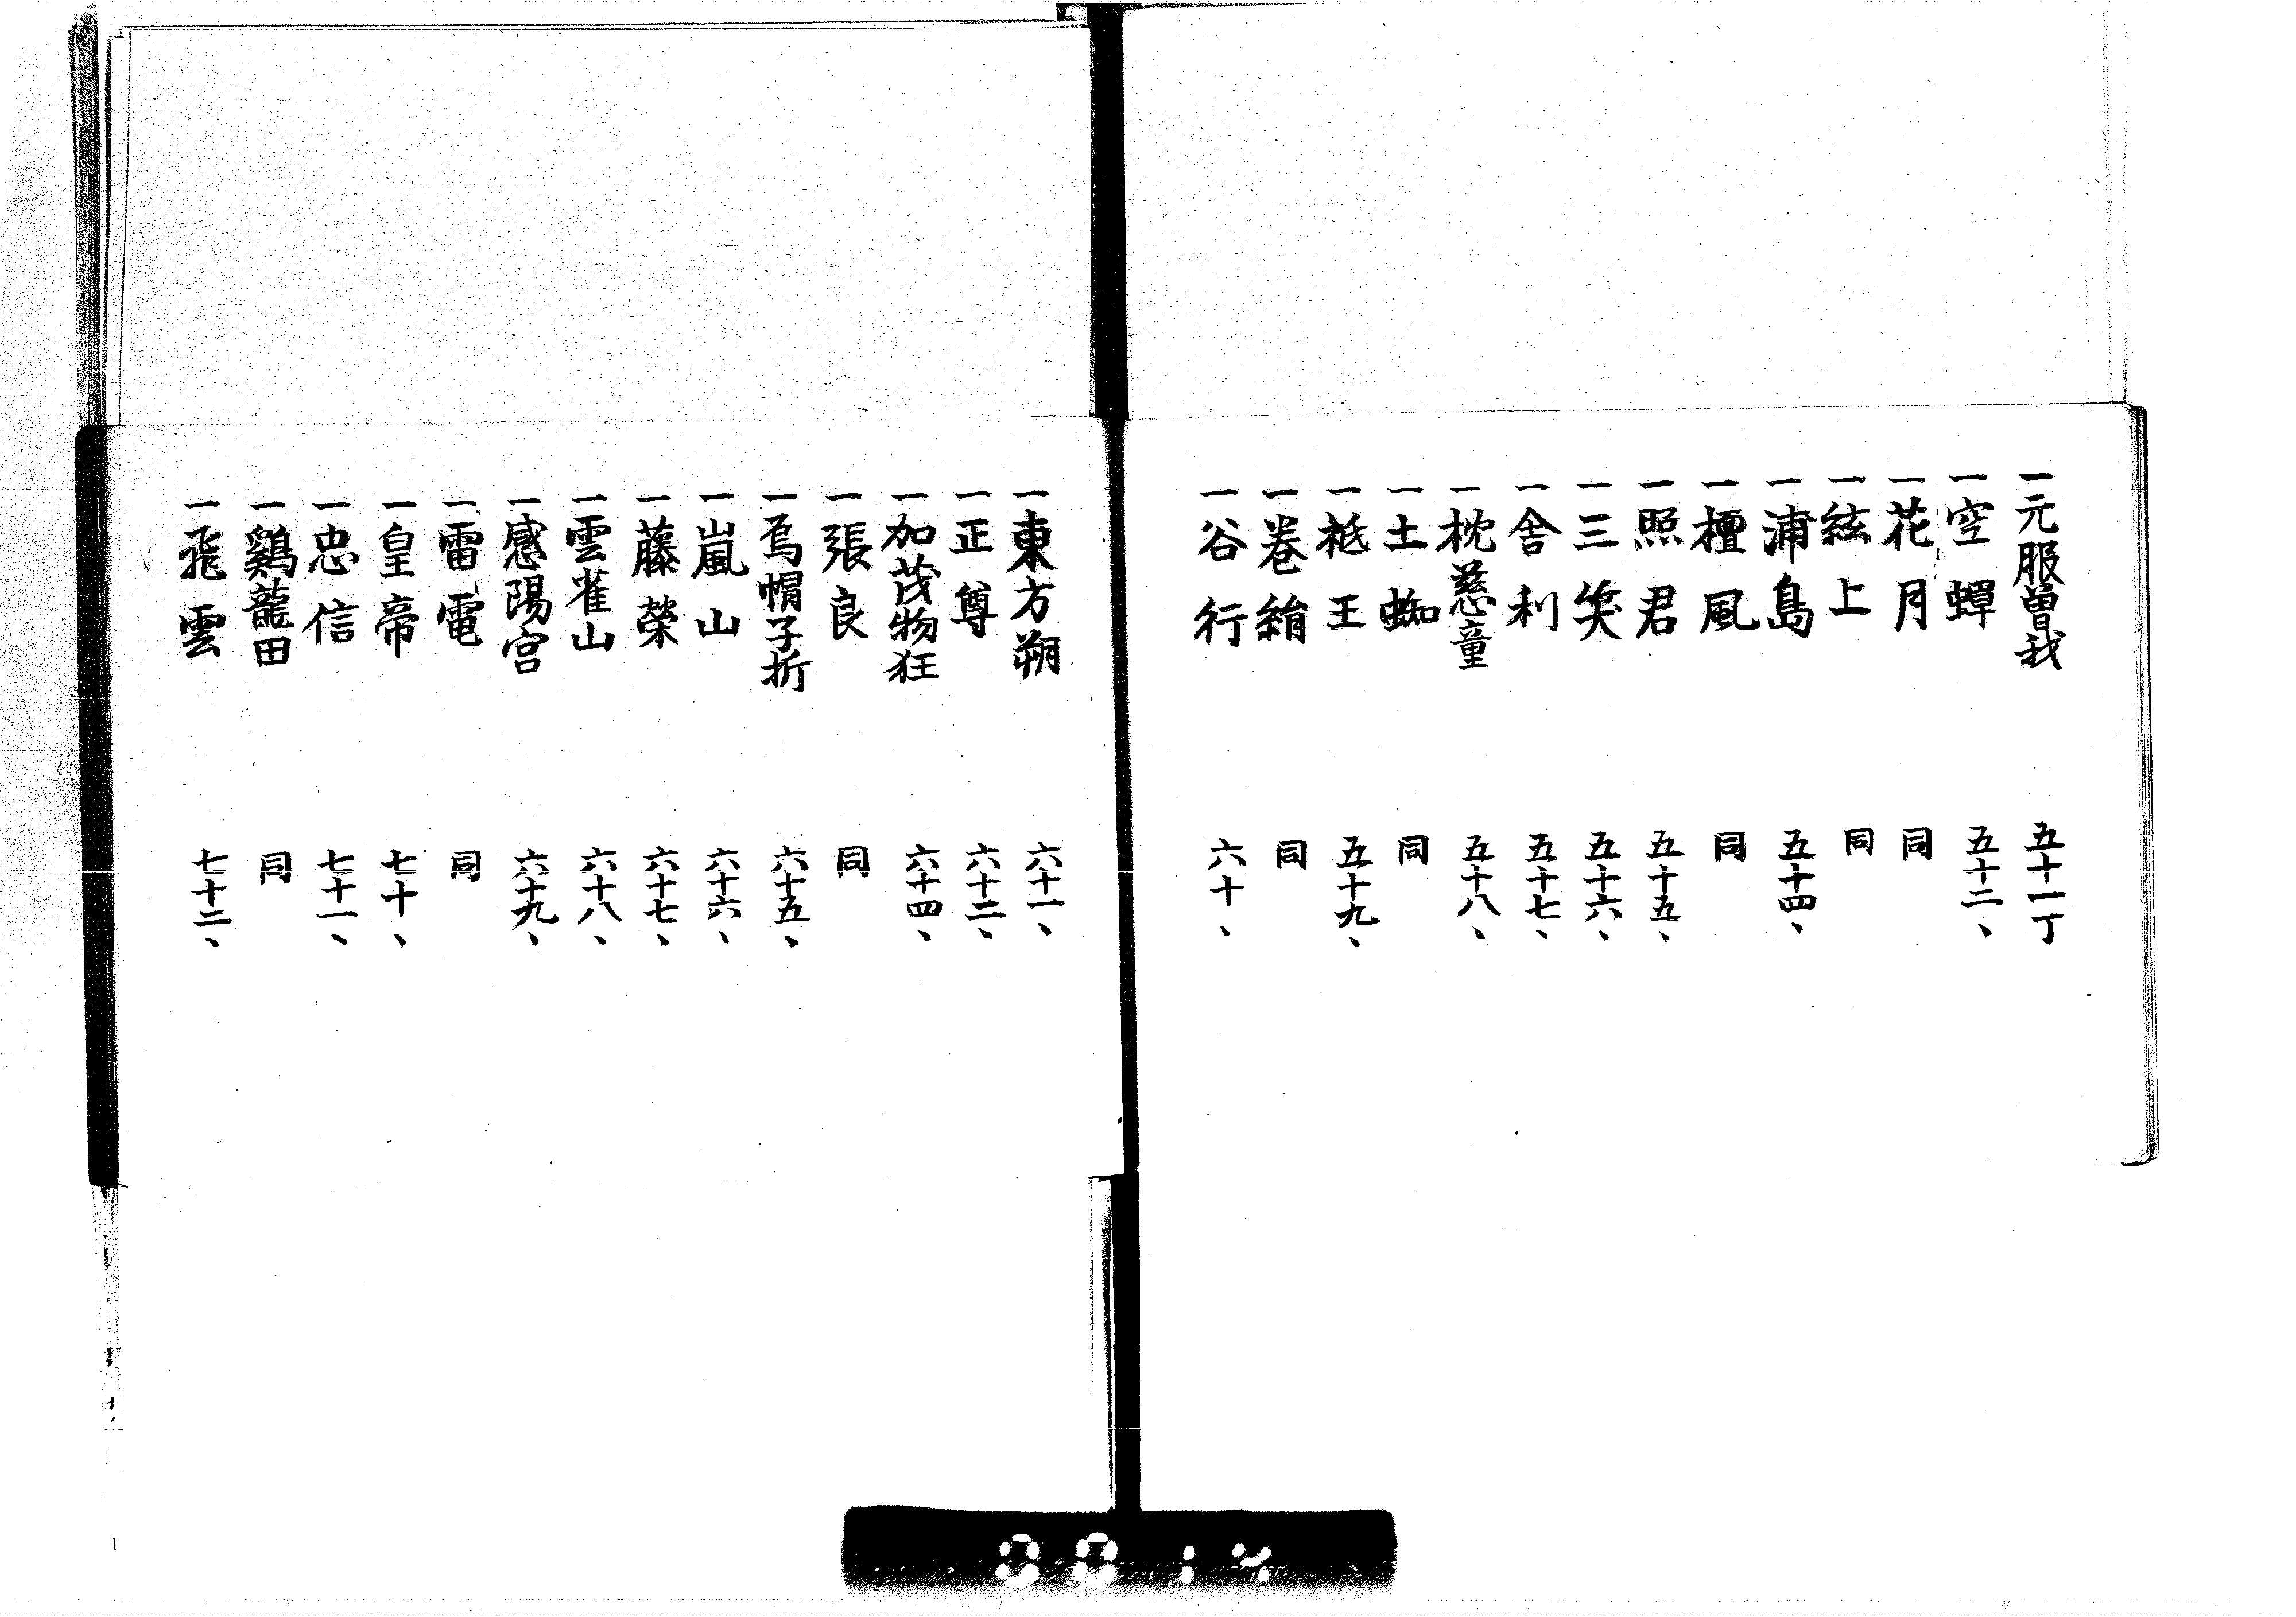 一元服曽我 五十一丁
一空蟬 五十二、
一花月 同
一絃上 同
一浦島 五十四、
一檀風 同
一照君 五十五、
一三笑 五十六、
一舎利 五十七、
一枕慈童 五十八、
一土蜘 同
一祇王 五十九、
一巻絹 同
一谷行 六十、
一東方朔 六十一、
一正尊 六十二、
一加茂物狂 六十四、
一張良 同
一烏帽子折 六十五、
一嵐山 六十六、
一藤榮 六十七、
一雲雀山 六十八、
一感陽宮 六十九、
一雷電 同
一皇帝 七十、
一忠信 七十一、
一鷄龍田 同
一飛雲 七十二、